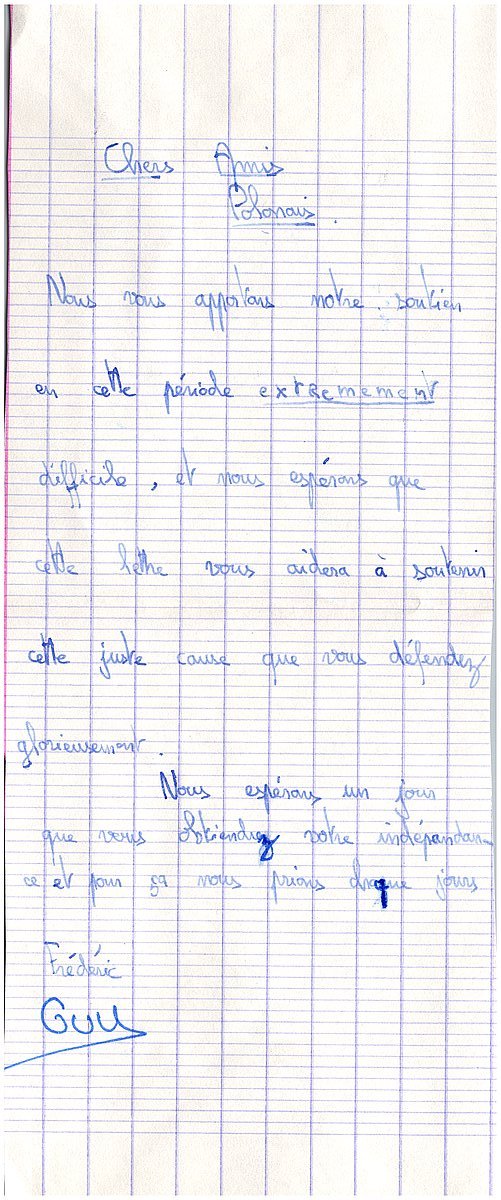 Chers Amis
Polonais.
Nous vous apportons notre soutien
en cette période extremement
difficile, et nous espérons que
cette lettre vous aidera à soutenir
cette juste cause que vous défendez
glorieusement.
Nous espérons un jour
que vous obtiendrez votre indépandan-
ce et pour ça nous prions chaque jours
Frédéric